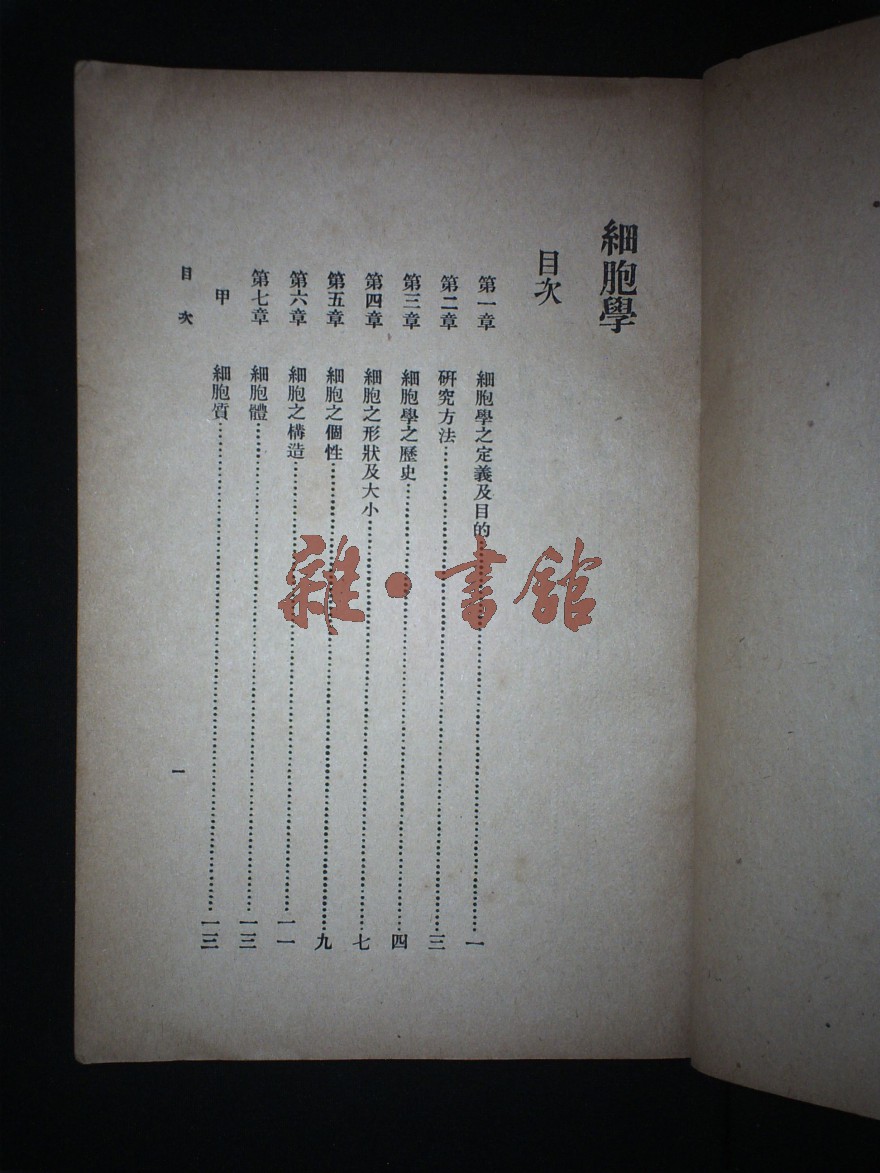 細胞學
目次
第一章 細胞學之定義及目的……一
第二章 研究方法……三
第三章 細胞學之歷史……四
第四章 細胞之形狀及大小……七
第五章 細胞之個性……九
第六章 細胞之構造……一一
第七章 細胞體……一三
甲 細胞質……一三
目次 一
雜·書館